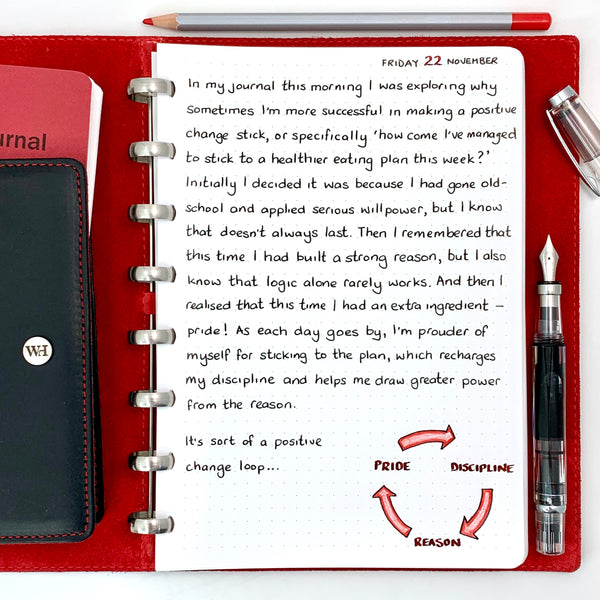 FRIDAY 22 NOVEMBER
In my journal this morning I was exploring why
sometimes I'm more successful in making a positive
change stick, or specifically 'how come I've managed
to stick to a healthier eating plan this week?'
Initially I decided it was because I had gone old-
school and applied serious willpower, but I know
that doesn't always last. Then I remembered that
this time I had built a strong reason, but I also
know that logic alone rarely works. And then I
realised that this time I had an extra ingredient –
pride! As each day goes by, I'm prouder of
myself for sticking to the plan, which recharges
my discipline and helps me draw greater power
from the reason.
It's sort of a positive
change loop...
PRIDE
DISCIPLINE
REASON
urnal
WH